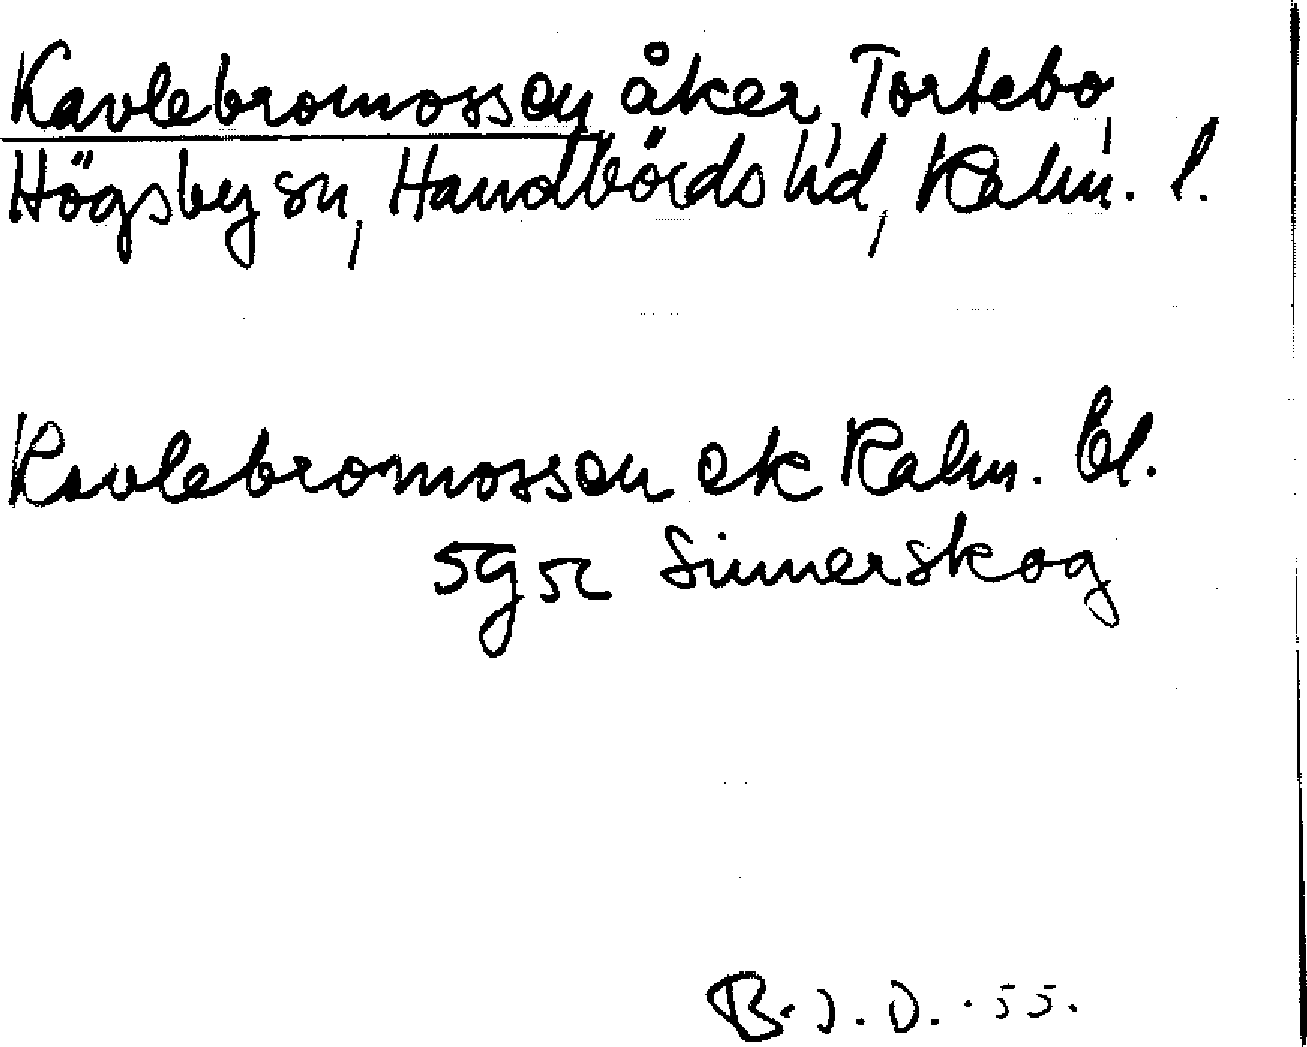 Kavlebromossen åker, Tortebo,
Högsby sn, Handbörds hd, Kalm. l.
Kavlebromossen ek Kalm. bl.
5g5c Simmerskog
B.J.D. 55.